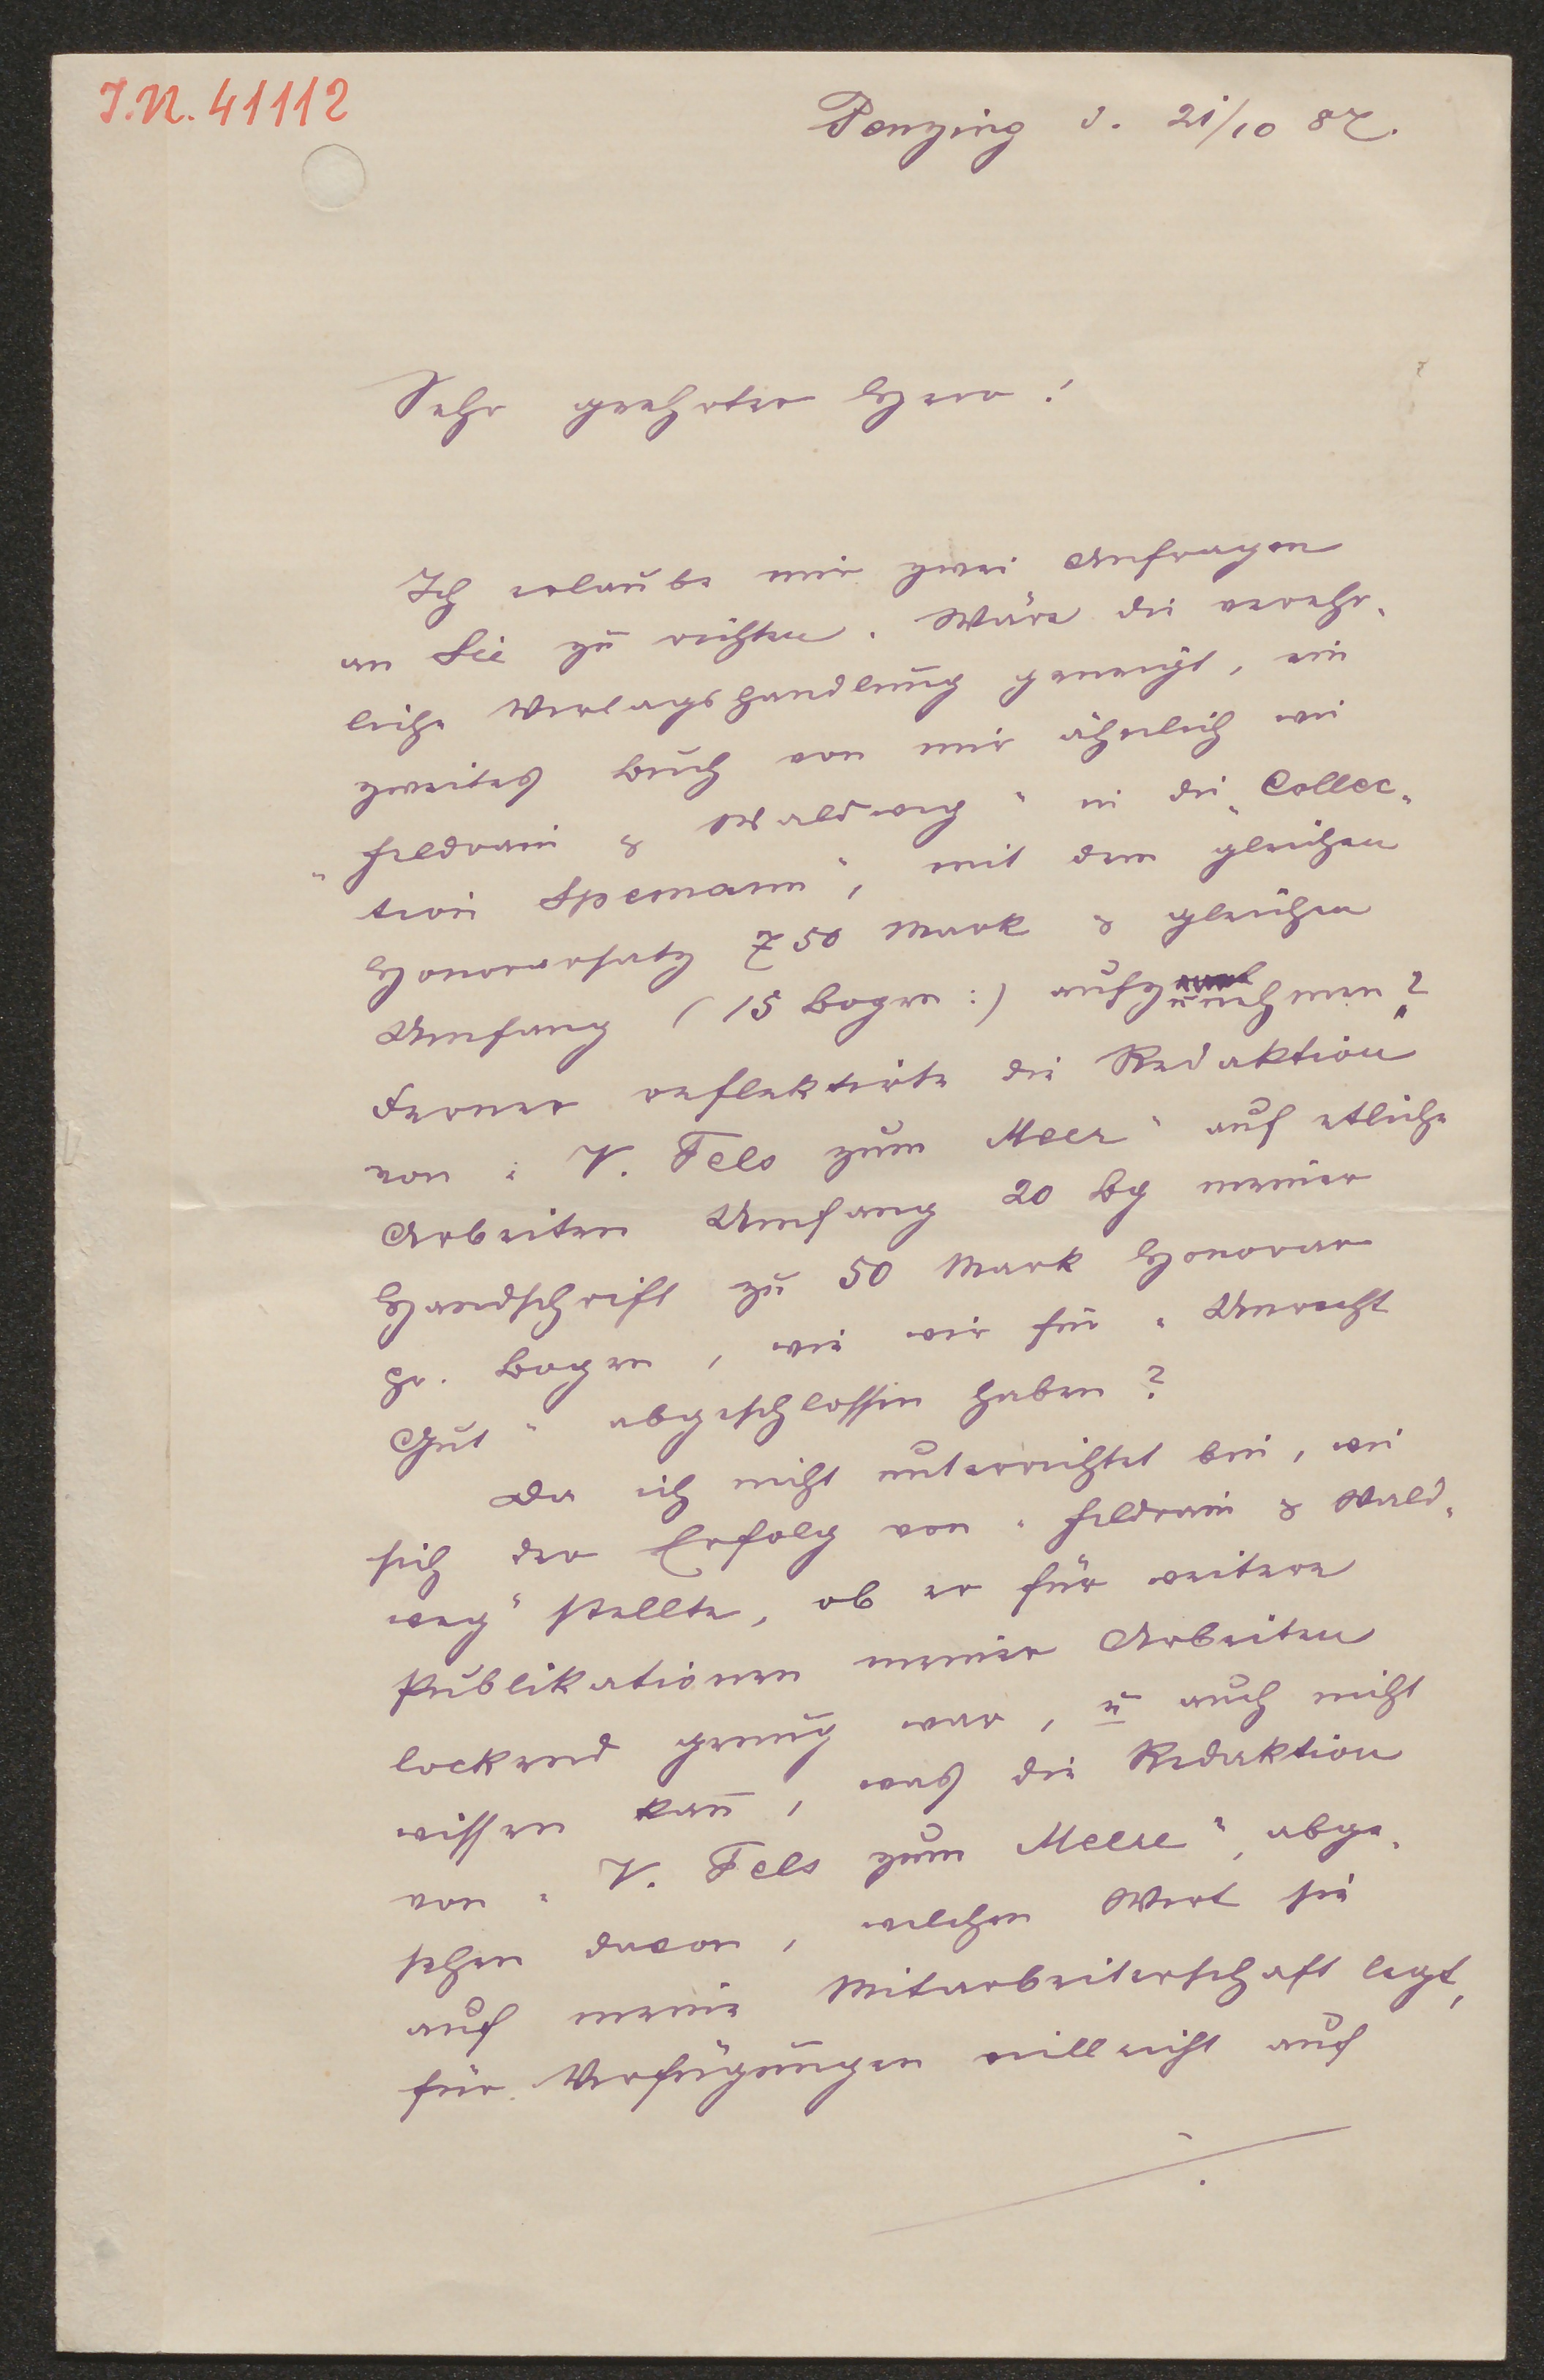 I.N. 41112
Penzing d. 21/10 82.
Sehr geehrter Herr!
Ich erlaube mir zwei Anfragen
an Sie zu richten. Wäre die verehr-
liche Verlagshandlung geneigt, ein
zweites Buch von mir ähnlich wie
"Feldrain & Waldweg" in die "Collec-
tion Spemann", mit dem gleichen
Honorarsatz 750 Mark & gleichen
Umfang (15 Bogen:) aufzunehmen?
Ferner reflektirte die Redaktion
von "V. Fels zum Meer" auf etliche
Arbeiten Umfang 20 Bg meiner
Handschrift zu 50 Mark Honorar
pr. Bogen, wie wir für "Unrecht
Gut" abgeschlossen haben?
Da ich nicht unterrichtet bin, wie
sich der Erfolg von "Feldrain & Wald-
weg" stellte, ob er für weitere
Publikationen meiner Arbeiten
lockend genug war, u auch nicht
wissen kan̄, was die Redaktion
von "V. Fels zum Meere", abge-
sehen davon, welchen Wert sie
auf meine Mitarbeiterschaft legt,
für Verfügungen villeicht auf